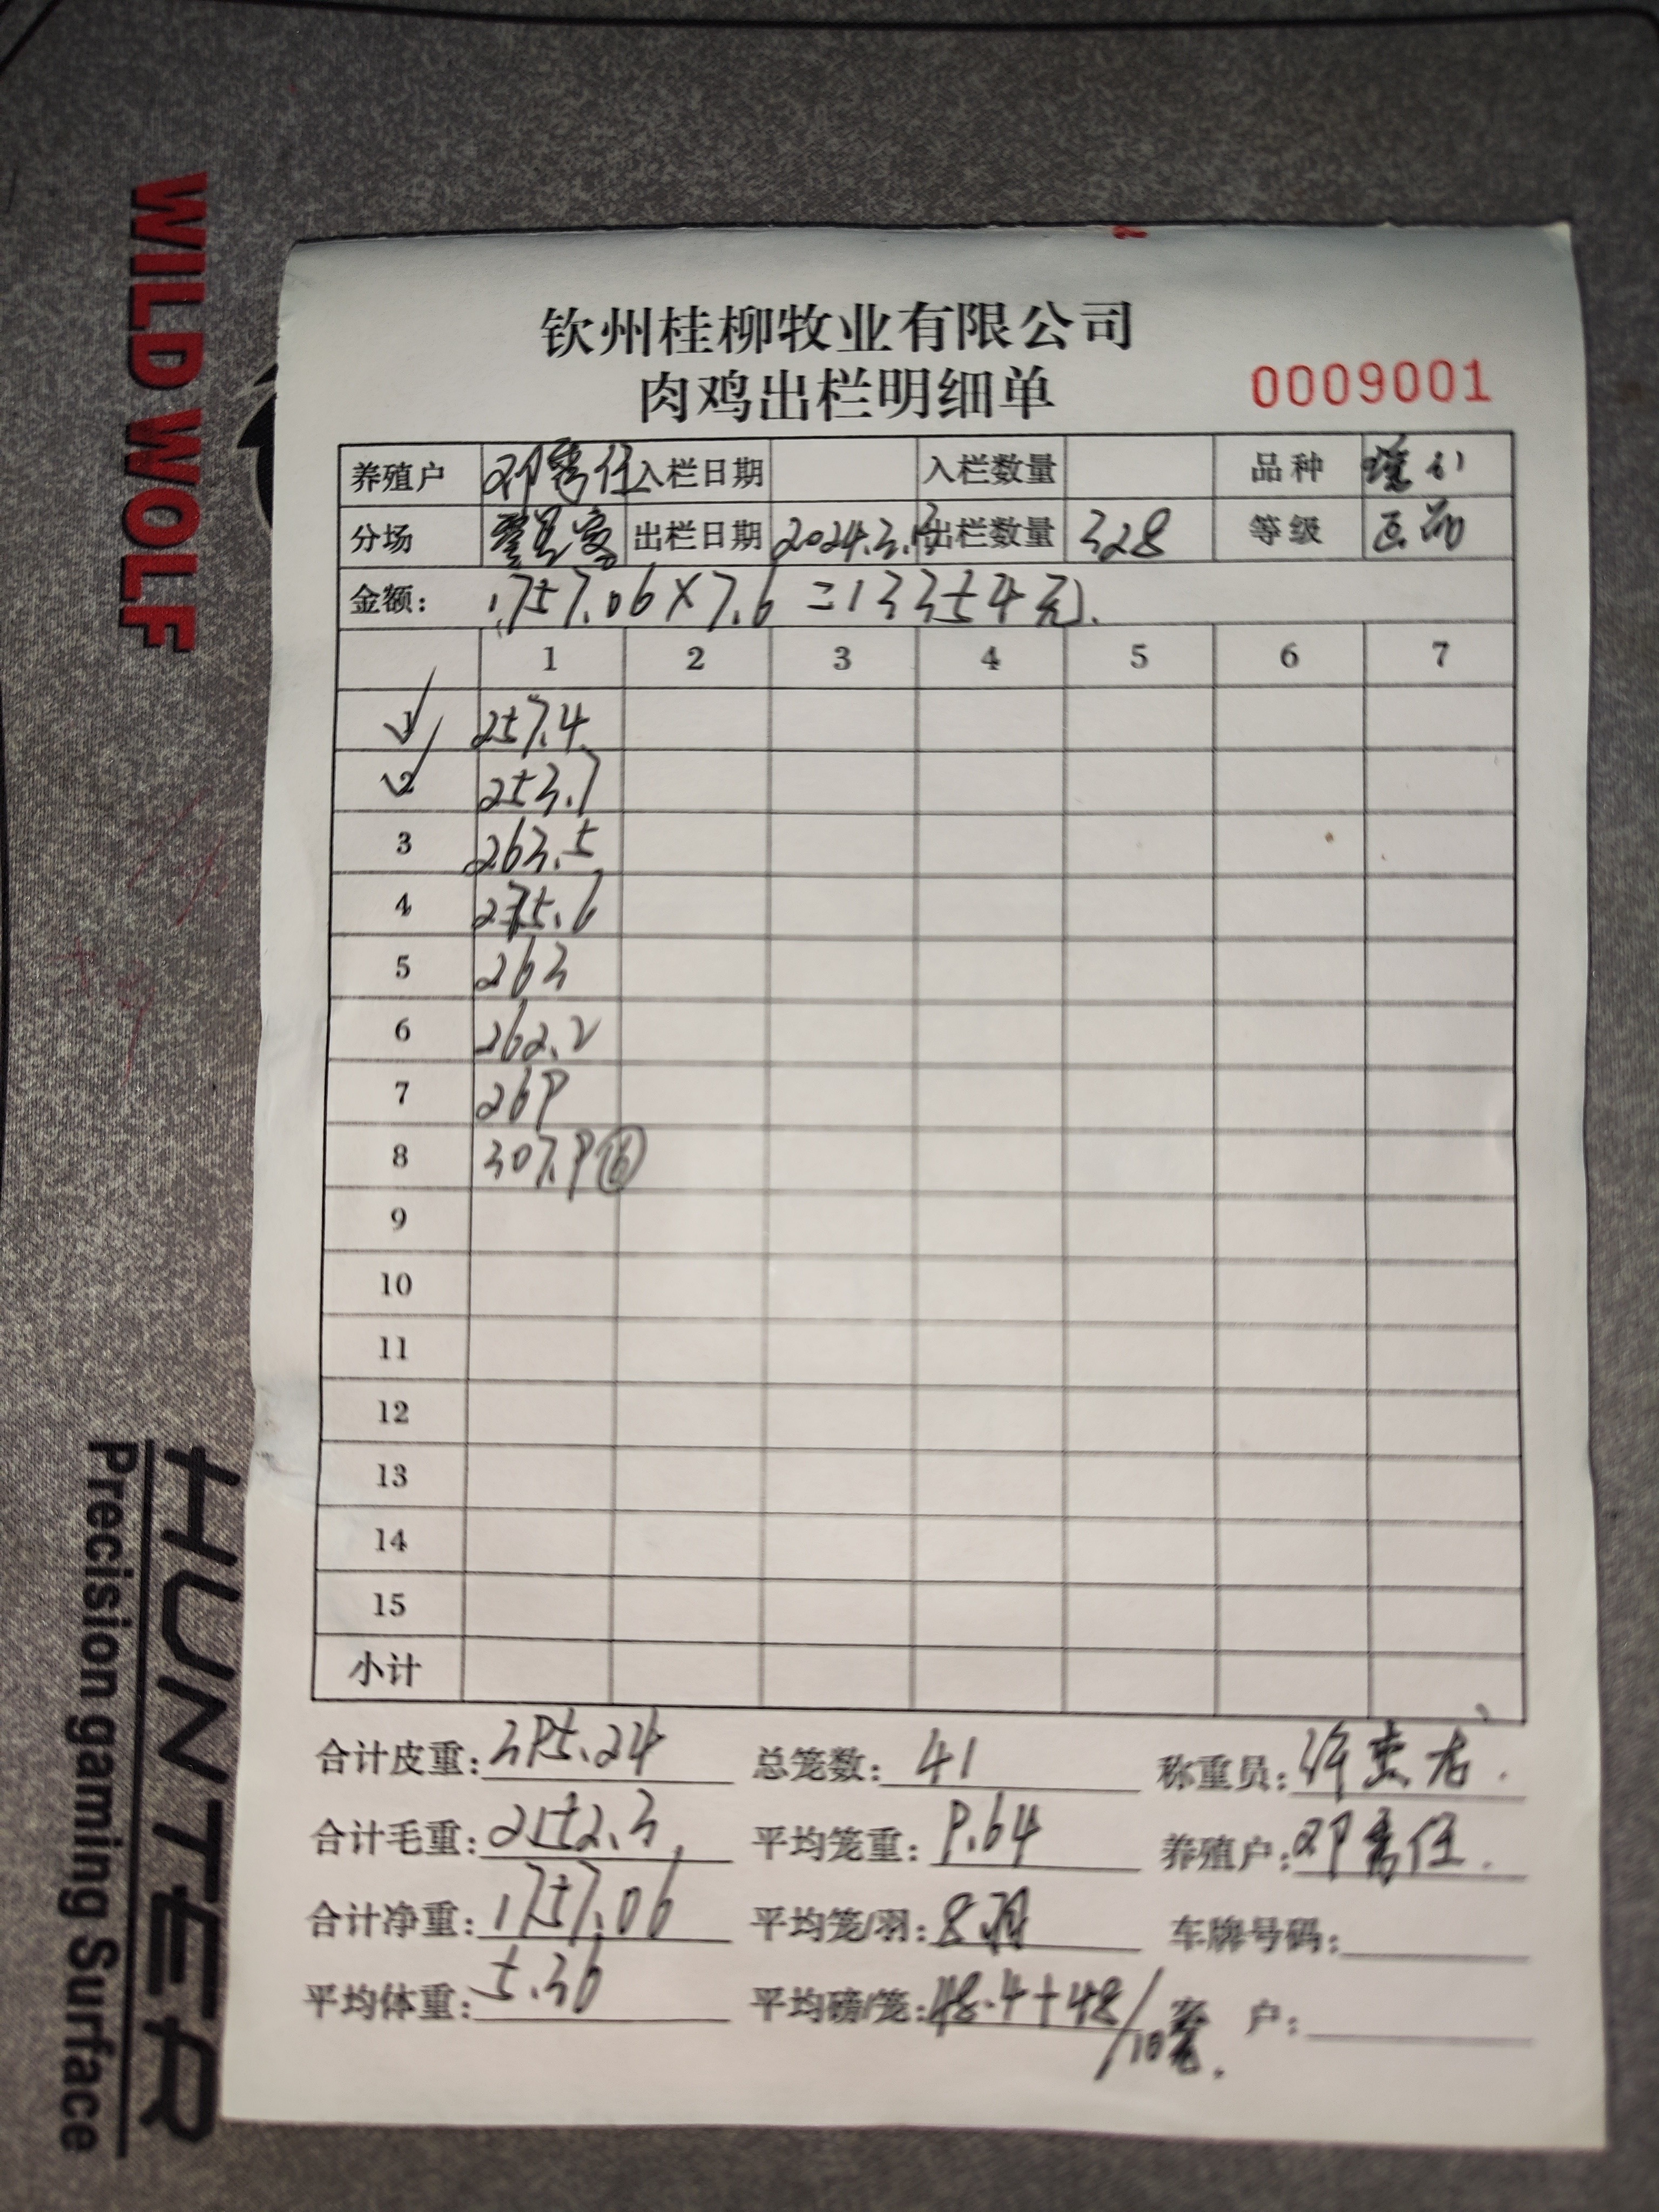 钦州桂柳牧业有限公司
肉鸡出栏明细单
0009001
养殖户 邓秀任 入栏日期 入栏数量 品种
分场 出栏日期 2024.3.13 出栏数量 328 等级 正品
金额: 1757.06×7.6=13354元.
1 2 3 4 5 6 7
1 257.4
2 253.7
3 263.5
4 275.6
5 263
6 262.2
7 269
8 307.9 ⑥
9
10
11
12
13
14
15
小计
合计皮重: 395.24 总笼数: 41 称重员:
合计毛重: 2152.3 平均笼重: 9.64 养殖户: 邓秀任.
合计净重: 1757.06 平均笼/羽: 8羽 车牌号码:
平均体重: 5.36 平均磅/笼: 48.4+48/10 客 户:
WILD WOLF
HUNTER
Precision gaming Surface